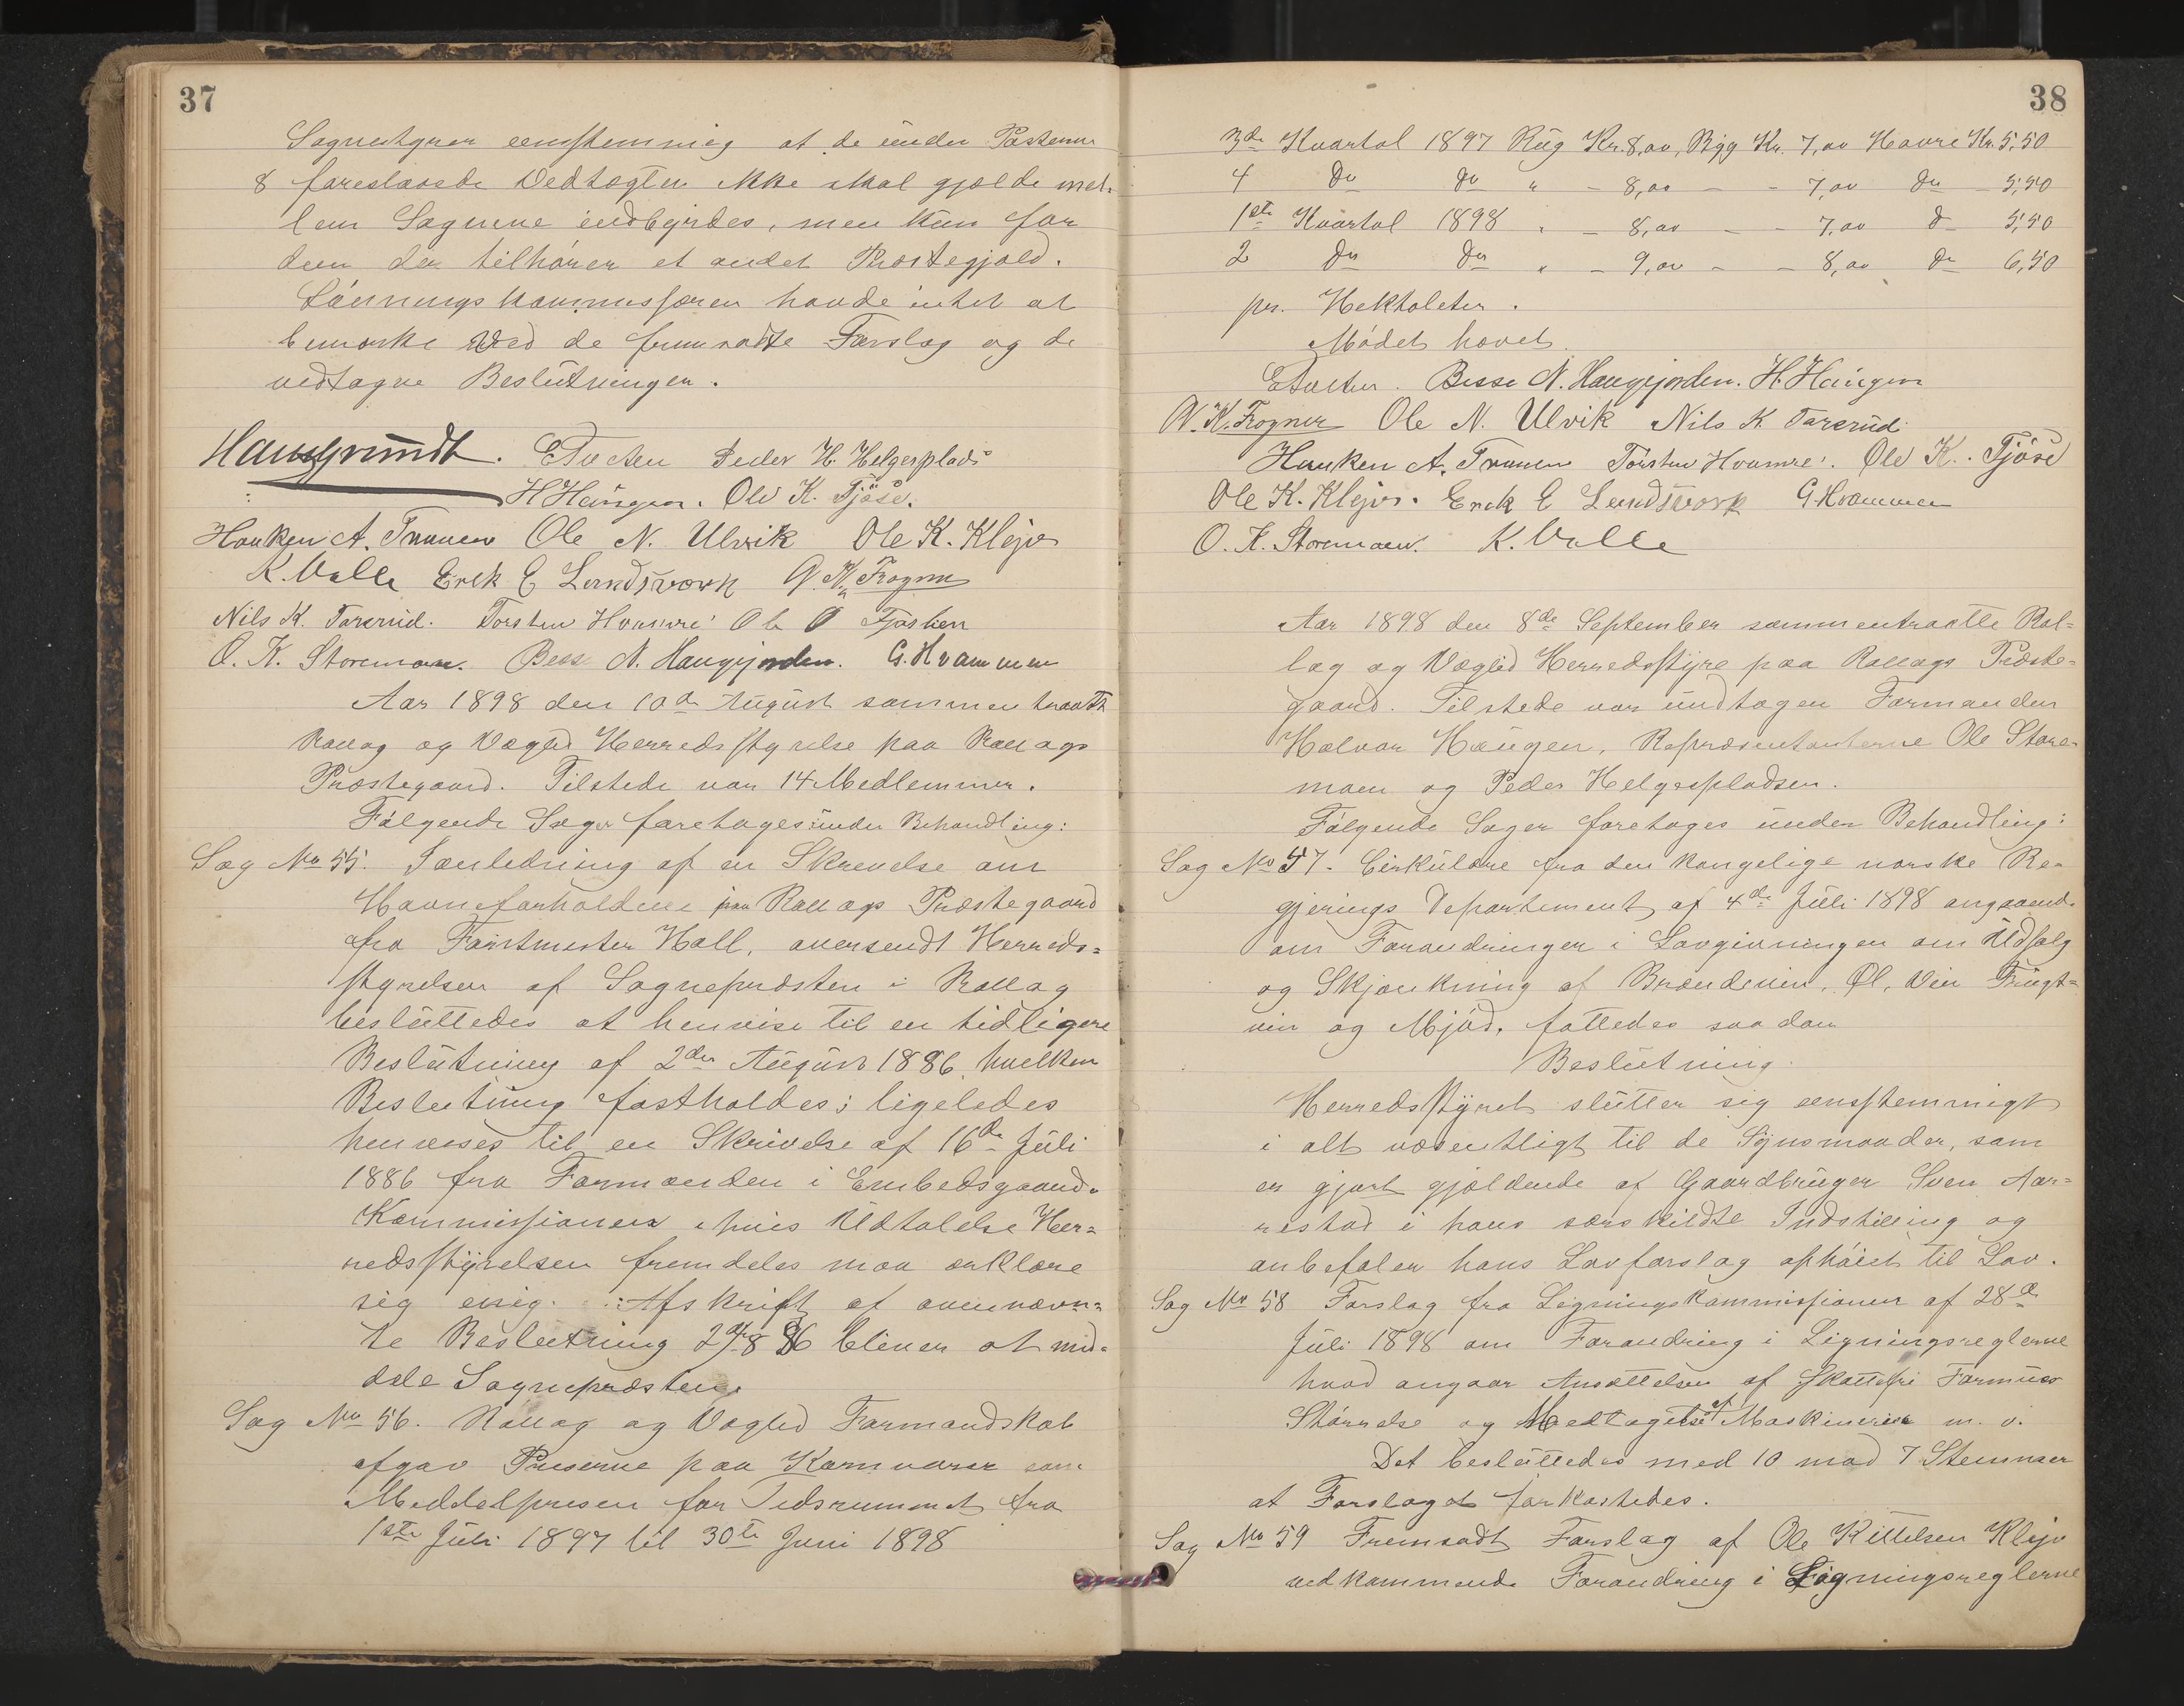 37
Sognestyrer eenstemmig at de under Posterne
8 foreslaaede Vedtægter ikke skal gjælde mel-
lem Sognene indbyrdes, men kun for
dem der tilhører et andet Præstegjæld.
Lønningskommissæren havde intet at
bemærke ved de fremsatte Forslag og de
vedtagne Beslutninger.
Haugrundt. Peder H. Helgesplads
H Haugen. Ole K. Fjøse.
Haaken A. Traaen Ole N. Ulvik Ole K. Klejv
K. Valle Erik E Landsværk N. K. Frogner
Nils K. Farerud. Torsten Hvamre Ole O Fjøslien
O. K. Storemoen. Besse N. Haugjorden. G. Kvammen
Aar 1898 den 10de August sammentraatte
Rollag og Vægli Herredsstyrelse paa Rollags
Præstegaard. Tilstede var 14 Medlemmer.
Følgende Sager foretoges under Behandling:
Sag No 55. I anledning af en Skrevelse om
Havneforholdene paa Rollags Præstegaard
fra Forstmester Hall, oversendt Herreds=
styrelsen af Sognepræsten i Rollag
besluttedes at henvise til en tidligere
Beslutning af 2den August 1886, hvilken
Beslutning fastholdes; ligeledes
henvises til en Skrivelse af 16de Juli
1886 fra Formanden i Embedsgaards
Kommissionen hvis Udtalelse Her=
redsstyrelsen fremdeles maa erklære
sig enig. Afskrift af ovennævn=
te Beslutning 2/8 86 bliver at med-
dele Sognepræsten.
Sag No 56. Rollag og Vægli Formandskab
afgav Priserne paa Kornvarer som
Middelprisen for Tidsrummet fra
1ste Juli 1897 til 30te Juni 1898
38
3de Kvartal 1897 Rug Kr. 8,00, Bygg Kr. 7,00 Havre Kr. 5,50
4 do do " - 8,00 - - 7,00 do - 5,50
1ste Kvartal 1898 " - 8,00 - - 7,00 do - 5,50
2 do do " - 9,00 - - 8,00 do - 6,50
pr. Hektoleter.
Mødet hævet.
Besse N. Haugjorden. H. Haugen
N. K. Frogner Ole N. Ulvik Nils K. Farerud
Haaken A. Traaen Torsten Hvamre. Ole K. Fjøse
Ole K. Klejv. Erik E Landsværk G. Kvammen
O. K. Storemoen. K. Valle
Aar 1898 den 8de September sammentraatte Rol=
lag og Vægli Herredsstyre paa Rollags Præste=
gaard. Tilstede var undtagen Formanden
Halvor Haugen, Repræsentanterne Ole Store-
moen og Peder Helgespladsen.
Følgende Sager foretoges under Behandling:
Sag No 57. Cirkulære fra den kongelige norske Re-
gjerings Departement af 4de Juli 1898 angaaende
om Forandringer i Lovgivningen om Udsalg
og Skjænkning af Brændevin, Øl, Vin Frugt=
vin og Mjød, fattedes saadan
Beslutning.
Herredsstyret slutter sig eenstemmigt
i alt væsentligt til de Synsmaader, som
er gjort gjældende af Gaardbruger Sven Aar=
restad i hans særskildte Indstilling og
anbefaler hans Lovforslag ophøiet til Lov.
Sag No 58 Forslag fra Ligningskommissionen af 28de
Juli 1898 om Forandring i Ligningsreglerne
hvad angaar Ansættelsen af Skattefri Formues
Størrelse og Medtagelse af Maskinerier m. v.
Det besluttedes med 10 mod 7 Stemmer
at Forslaget forkastedes.
Sag No 59 Fremsadt Forslag af Ole Kittelsen Klejv
vedkommende Forandring i Ligningsreglerne